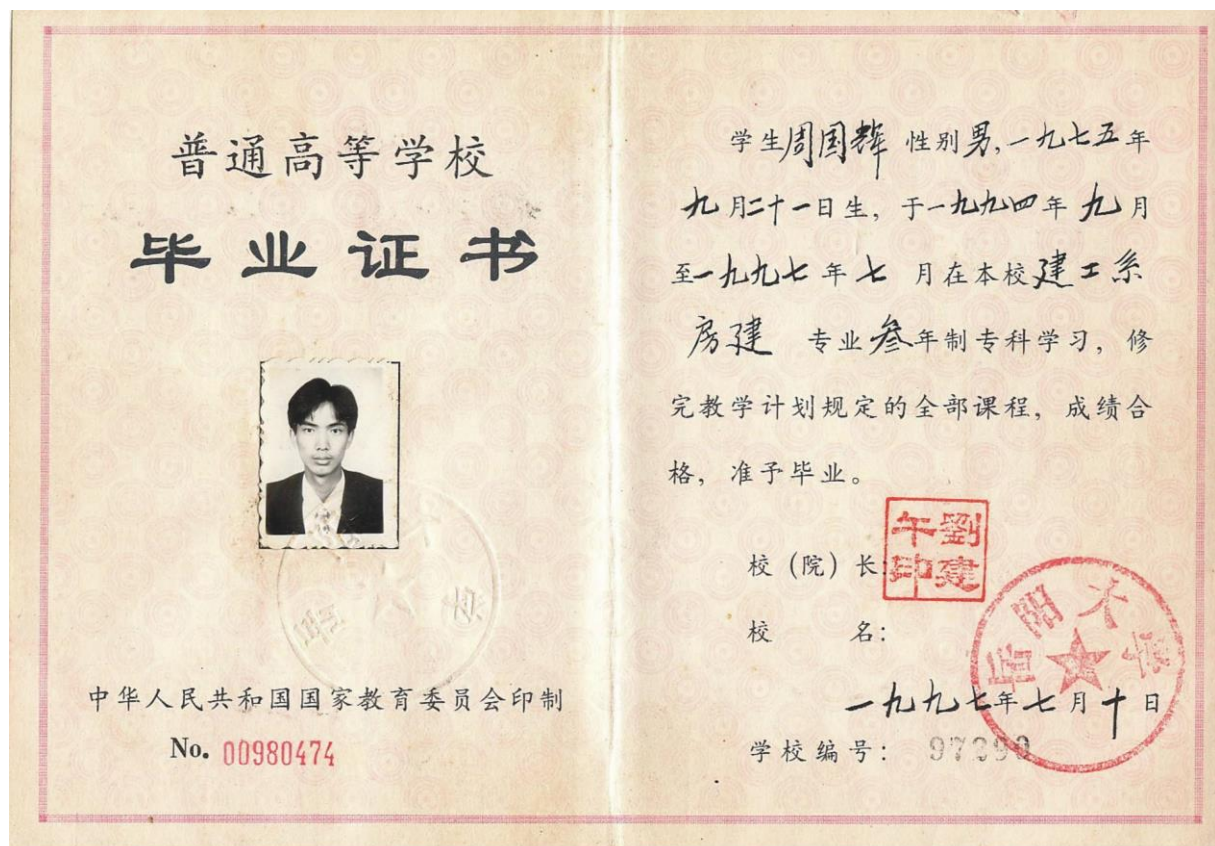 普通高等学校
毕业证书
中华人民共和国国家教育委员会印制
No. 00980474
学生周国辉 性别男,一九七五年
九月二十一日生,于一九九四年九月
至一九九七年七月在本校建工系
房建 专业叁年制专科学习,修
完教学计划规定的全部课程,成绩合
格,准予毕业。
校(院)长:
劉建午印
校 名:
岳阳大学
一九九七年七月十日
学校编号: